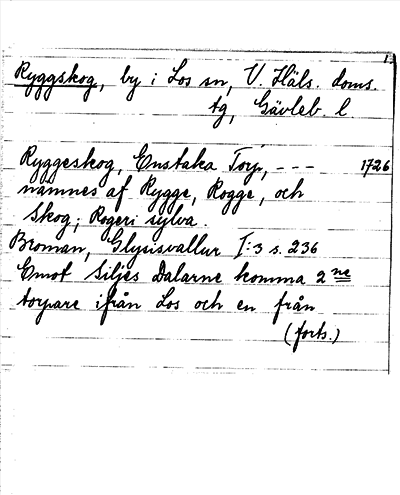 1.
Ryggskog, by i Los sn, V. Häls. doms.
tg, Gävleb. l.
Ryggeskog, Enstaka Torp, --- 1726
nämnes af Rygge, Rogge, och
Skog; Rogeri sylva.
Broman, Glysisvallur I:3 s. 236
Emot Siljes Dalarne komma 2ne
torpare ifrån Los och en från
(forts.)